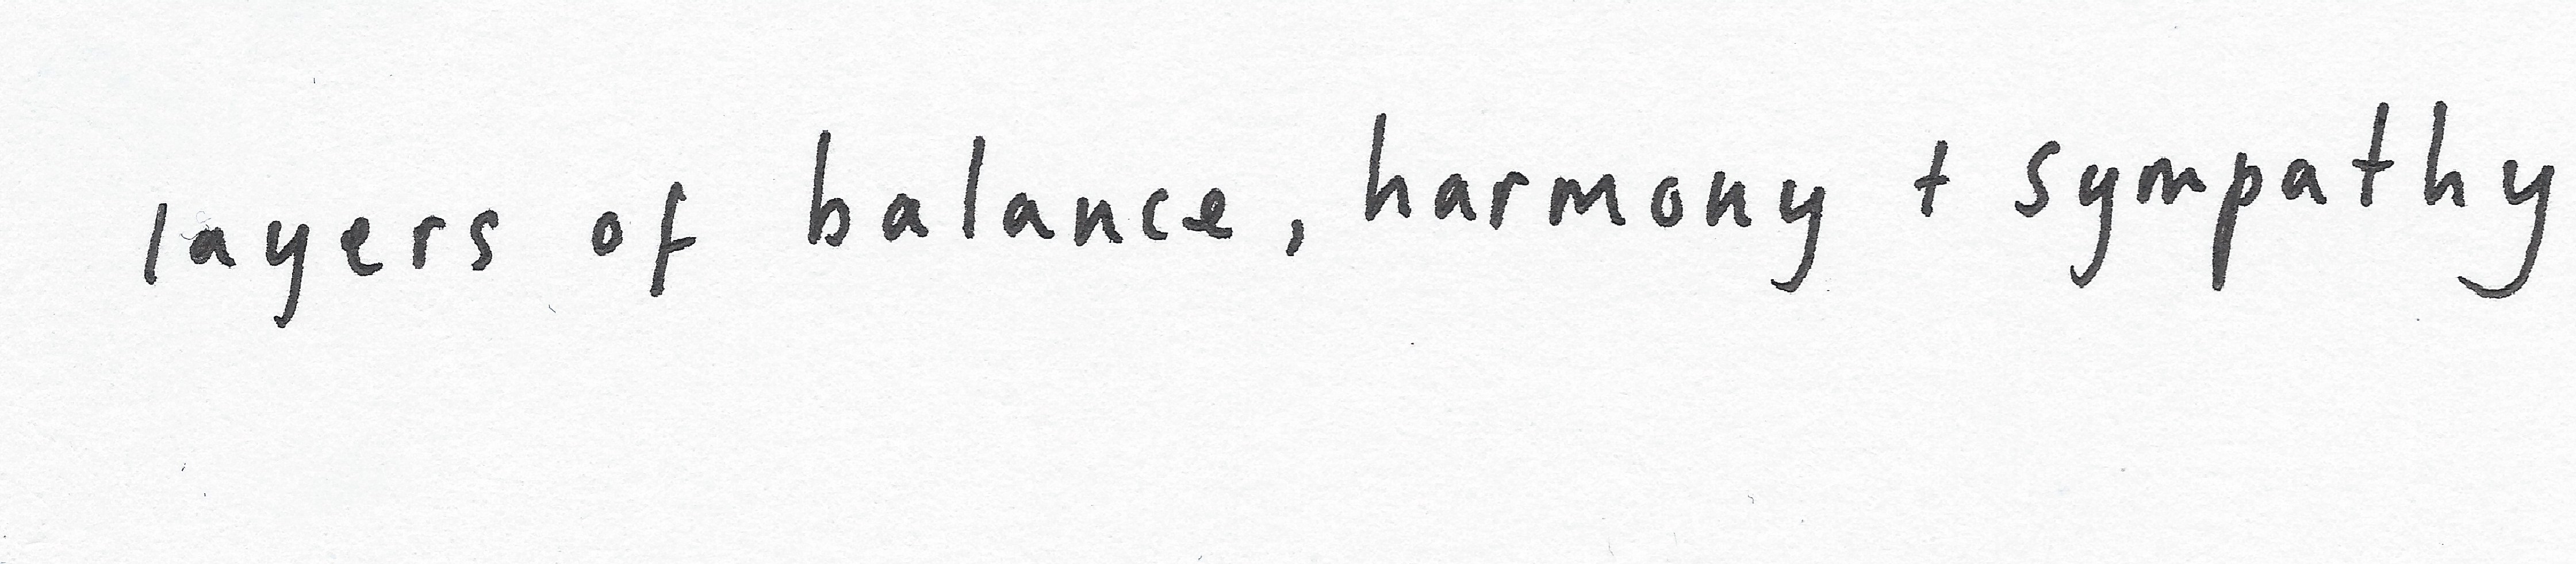 layers of balance, harmony + sympathy